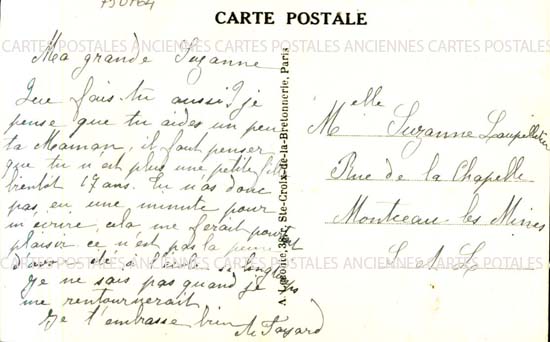 750764
CARTE POSTALE
CARTES POSTALES ANCIENNES CARTES POSTALES ANCIENNES CARTES POSTALES
Ma grande Suzanne
Que fais-tu aussi? je
pense que tu aides un peu
ta Maman, il faut penser
que tu n'est plus une petite fille
bientôt 17 ans. Tu n'as donc
pas eu une minute pour
m'écrire, cela me ferait pour
plaisir ce n'est pas la
d'avoir été à l'école si longtemps
Je ne sais pas quand je
me rentournerait
Je t'embrasse bien
M Fayard
A. Leconte, 38, r. Ste-Croix-de-la-Bretonnerie, Paris
Melle Suzanne Laupelletier
Rue de la Chapelle
Montceau-les Mines
S et L